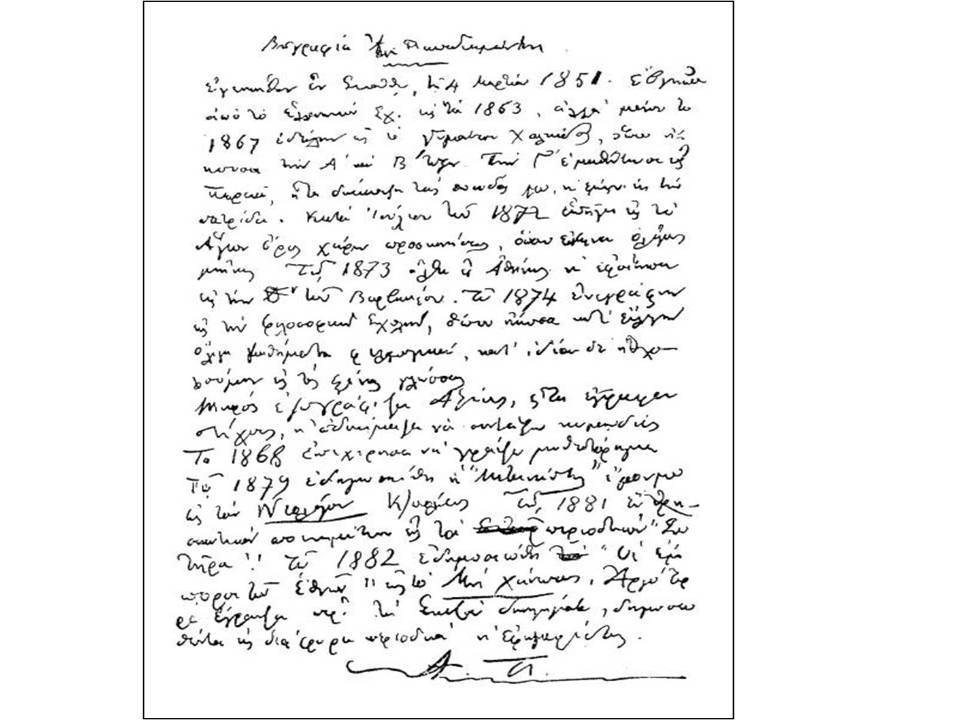 Βιογραφία Ἀλ. Παπαδιαμάντη
Ἐγεννήθην ἐν Σκιάθῳ, τῇ 4 Μαρτίου 1851. Ἐβγῆκα
ἀπὸ τὸ Ἑλληνικὸν Σχ. εἰς τὰ 1863, ἀλλὰ μόνον τὸ
1867 ἐστάλην εἰς τὸ Γυμνάσιον Χαλκίδος, ὅπου ἤ-
κουσα τὴν Α' καὶ Β' τάξιν. Τὴν Γ' ἐμαθήτευσα εἰς
Πειραιᾶ, εἶτα διέκοψα τὰς σπουδάς μου κ' ἔμεινα εἰς τὴν
πατρίδα. Κατὰ Ἰούλιον τοῦ 1872 ὑπῆγα εἰς τὸ
Ἅγιον Ὄρος χάριν προσκυνήσεως, ὅπου ἔμεινα ὀλίγους
μῆνας. Τῷ 1873 ἦλθα εἰς Ἀθήνας κ' ἐφοίτησα
εἰς τὴν Δ' τοῦ Βαρβακείου. Τῷ 1874 ἐνεγράφην
εἰς τὴν Φιλοσοφικὴν Σχολήν, ὅπου ἤκουα κατ' ἐκλογὴν
ὀλίγα μαθήματα φιλολογικά, κατ' ἰδίαν δὲ ἠσχο-
λούμην εἰς τὰς ξένας γλώσσας.
Μικρὸς ἐζωγράφιζα Ἁγίους, εἶτα ἔγραφα
στίχους, κ' ἐδοκίμαζα νὰ συντάξω κωμῳδίας.
Τὸ 1868 ἐπεχείρησα νὰ γράψω μυθιστόρημα.
Τῷ 1879 ἐδημοσιεύθη ἡ "Μετανάστις" ἔργον μου
εἰς τὸν Νεολόγον Κ/πόλεως. Τῷ 1881 ἓν θρη-
σκευτικὸν ποιημάτιον εἰς τὸ περιοδικὸν "Σω
τῆρα". Τῷ 1882 ἐδημοσιεύθη "Οἱ ἔμ
ποροι τῶν Ἐθνῶν" εἰς τὸ Μὴ χάνεσαι. Ἀργότε
ρα ἔγραψα περὶ τὰ ἑκατὸν διηγήματα, δημοσιευ
θέντα εἰς διάφορα περιοδικὰ κ' ἐφημερίδας.
Α. Π.